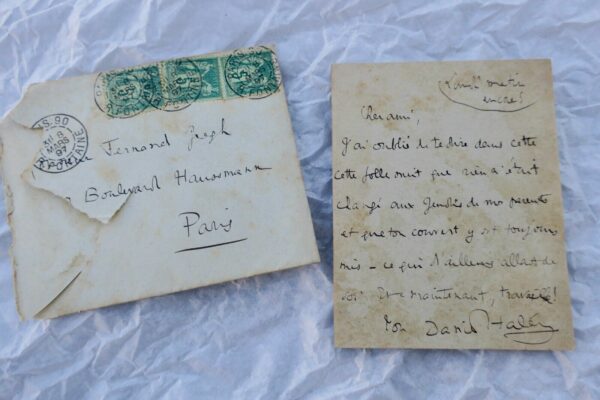 PARIS. 90
8
MARS
97
FONTAINE
Monsieur Fernand Gregh
Boulevard Haussmann
Paris
Lundi matin
encore
Cher ami,
J'ai oublié de te dire dans cette
cette folle nuit que rien n'était
changé aux Jeudis de mes parents
et que ton couvert y est toujours
mis — ce qui d'ailleurs allait de
soi. Et maintenant, travaille!
Ton Daniel Halévy